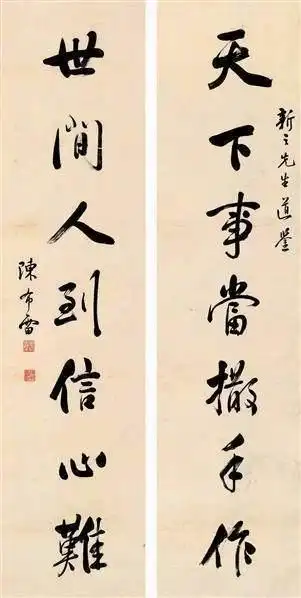 天下事當撒手作
新之先生道鑒
世間人到信心難
陳布雷